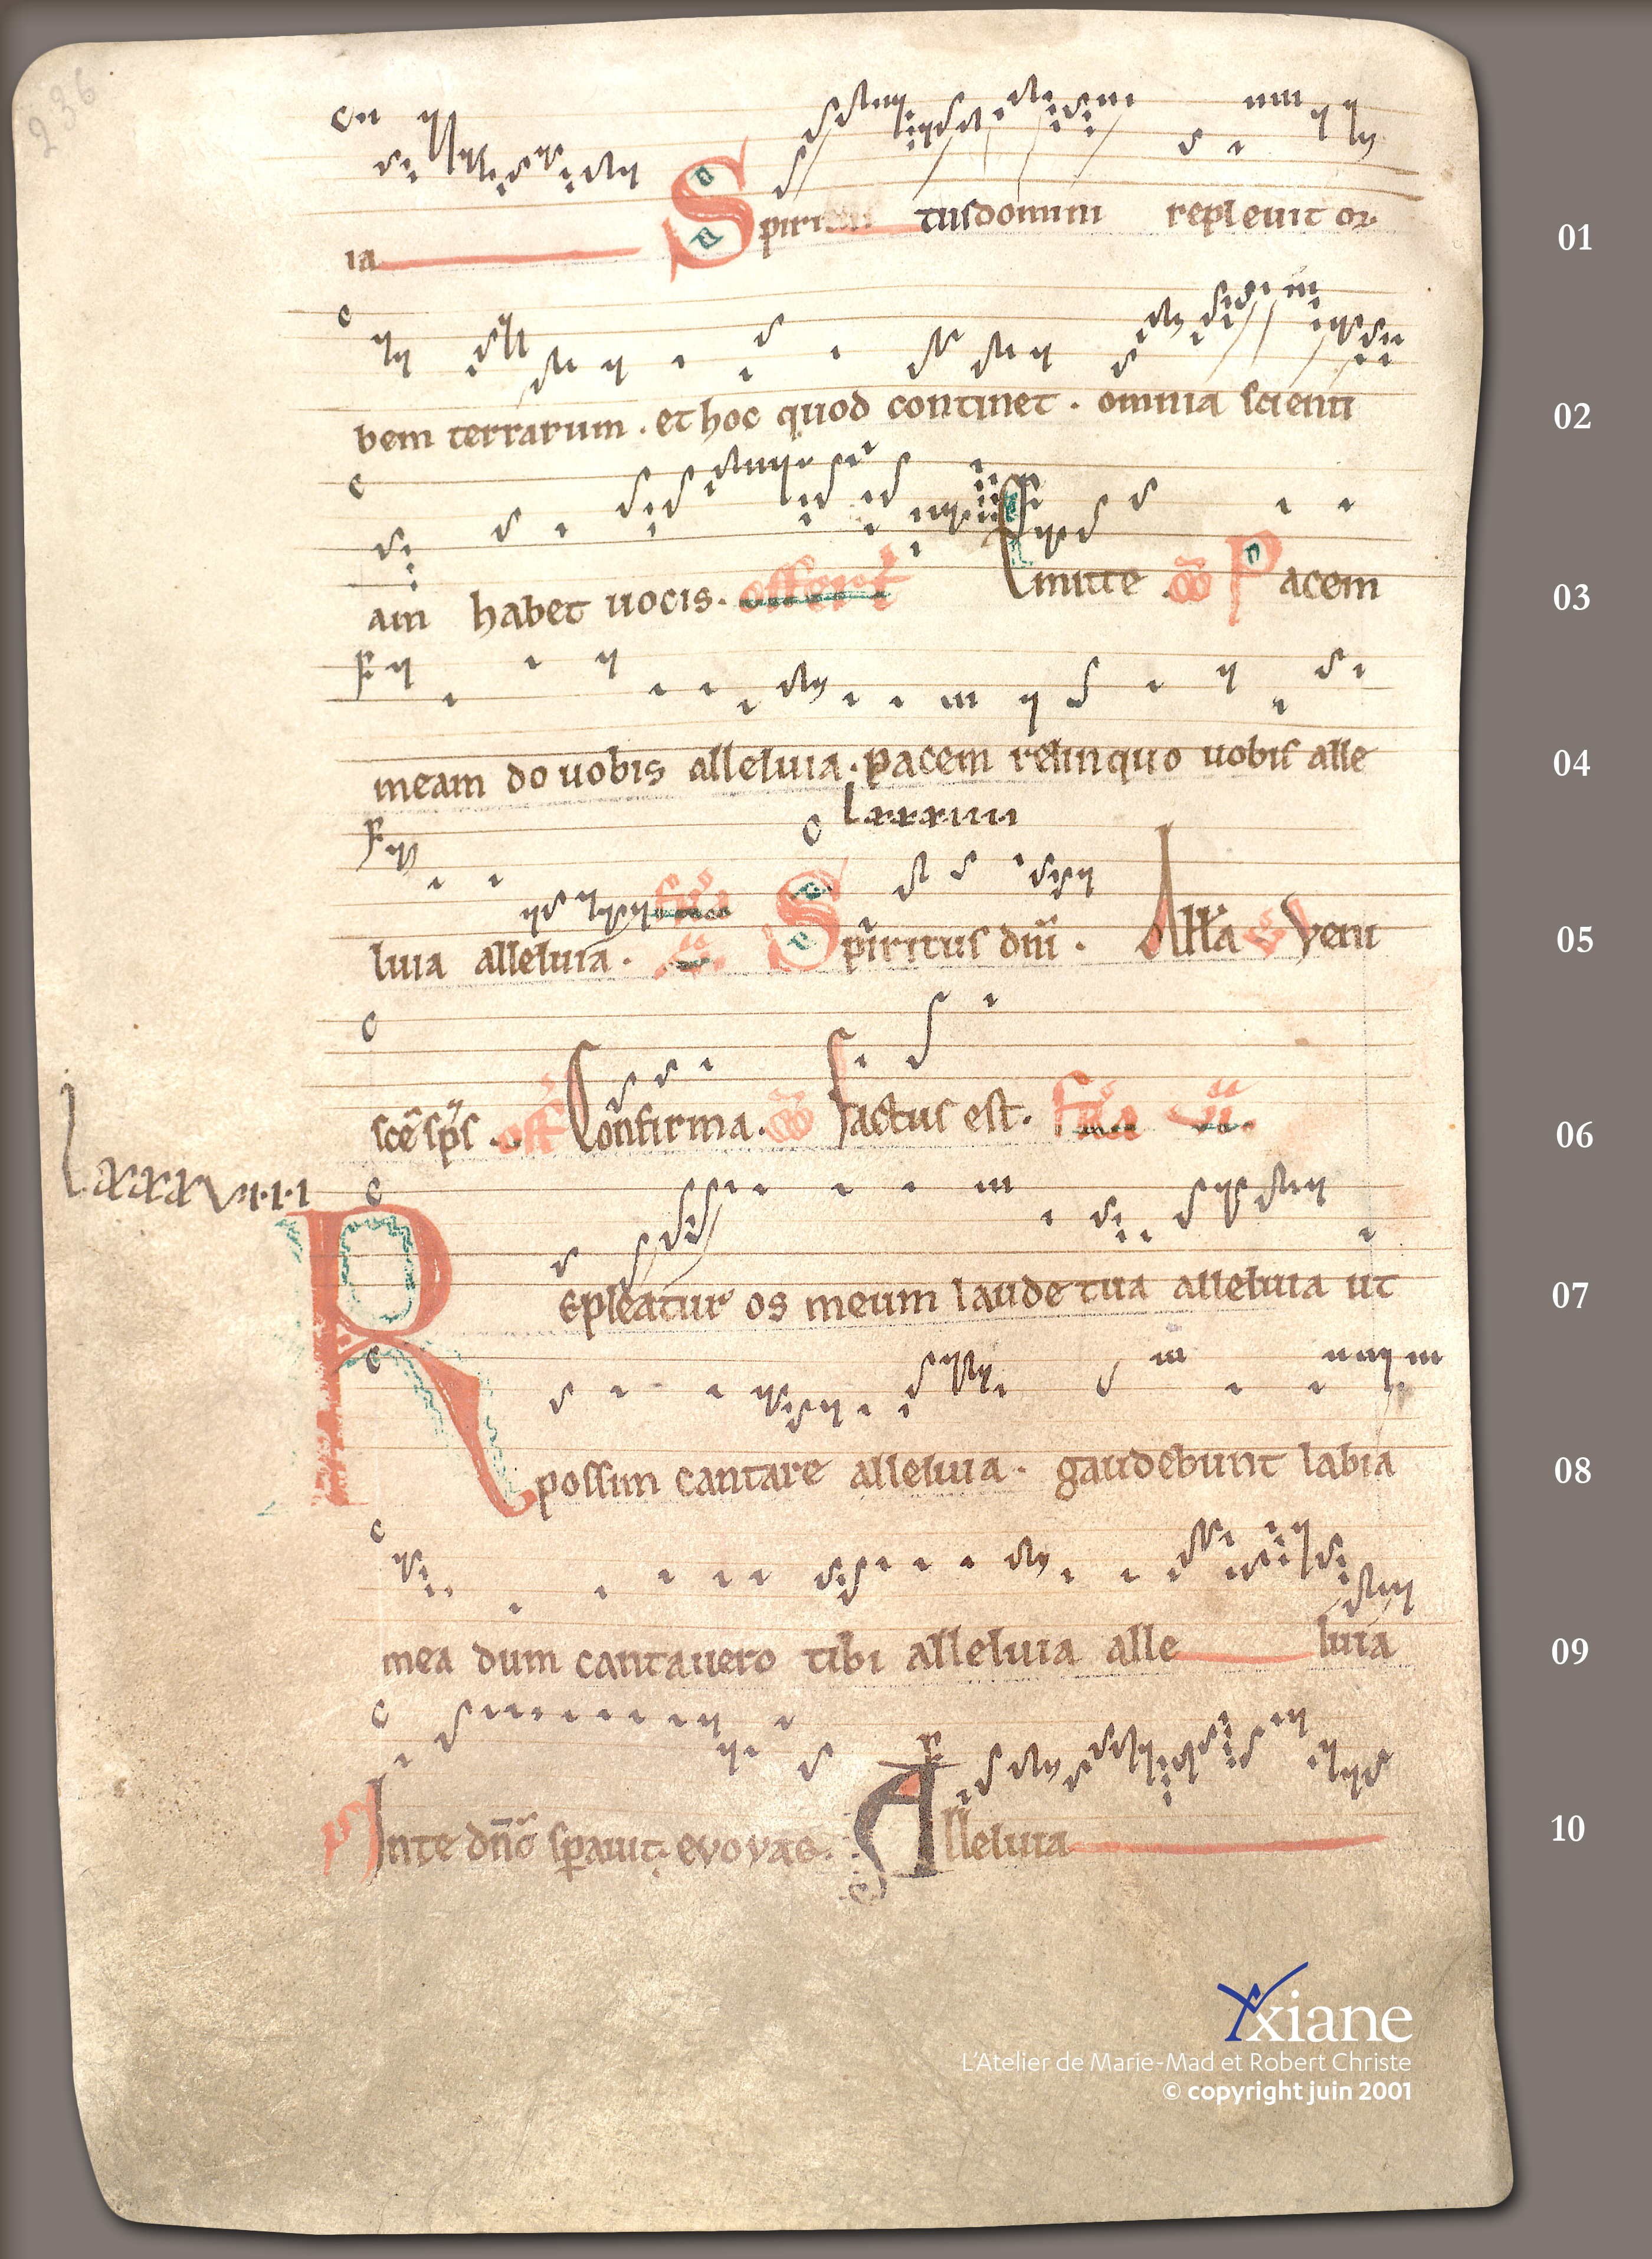 236
ia Spiri tus domini repleuit or 01
bem terrarum . et hoc quod continet . omnia scienti 02
am habet uocis . offert Emitte . c̄o Pacem 03
meam do uobis alleluia . pacem relinquo uobis alle 04
Lxxxviii
luia alleluia . Spiritus dn̄i . All'a Veni 05
sc̄e sp̄s . off Confirma . c̄o Factus est . fr̄ia ii. 06
LxxxVIIII
Repleatur os meum laude tua alleluia ut 07
possim cantare alleluia . gaudebunt labia 08
mea dum cantauero tibi alleluia alle luia 09
p̄s Inte dn̄e speraui . evovae . Alleluia 10
Yxiane
L'Atelier de Marie-Mad et Robert Christe
© copyright juin 2001